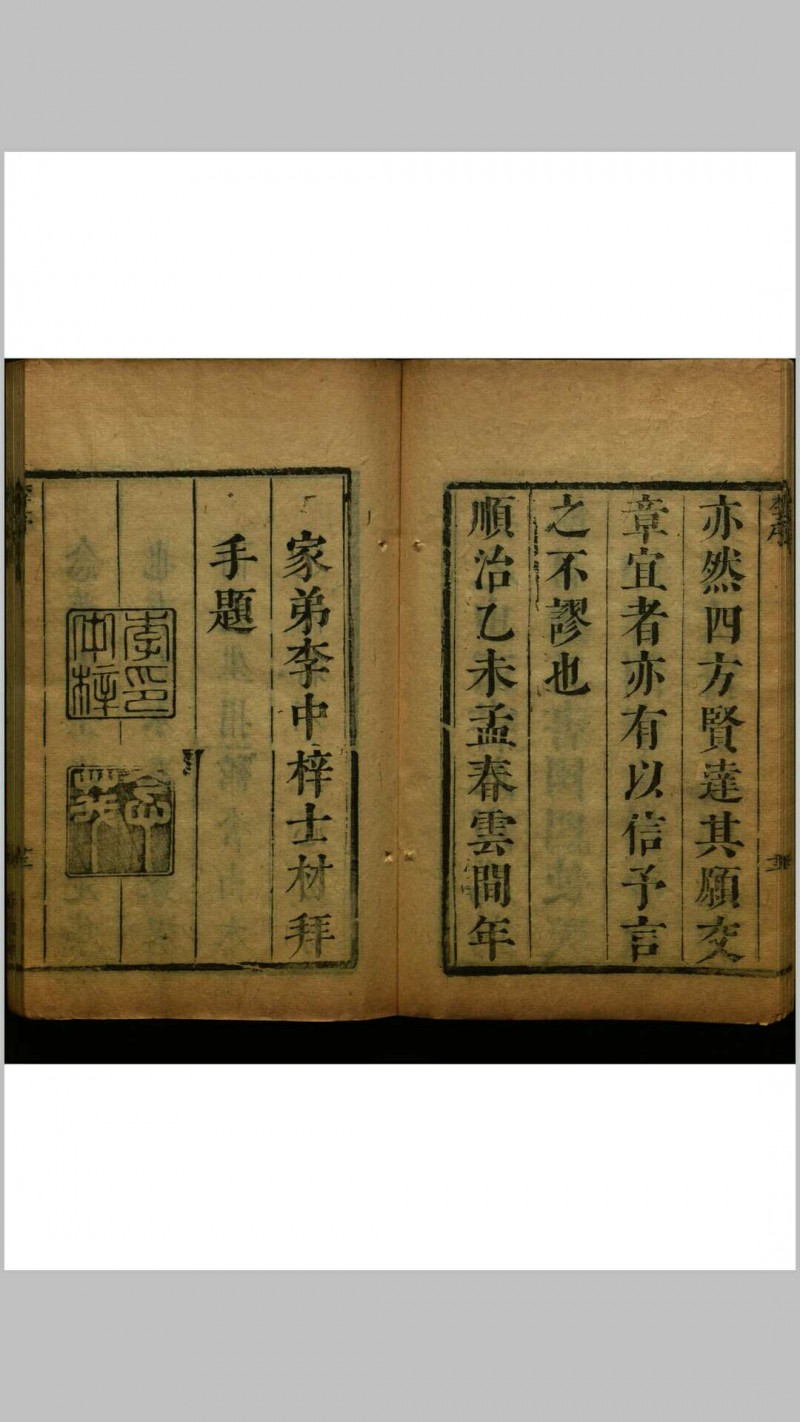 亦然四方賢達其願交
章宜者亦有以信予言
之不謬也
順治乙未孟春雲間年
家弟李中梓士材拜
手題
李印
中梓